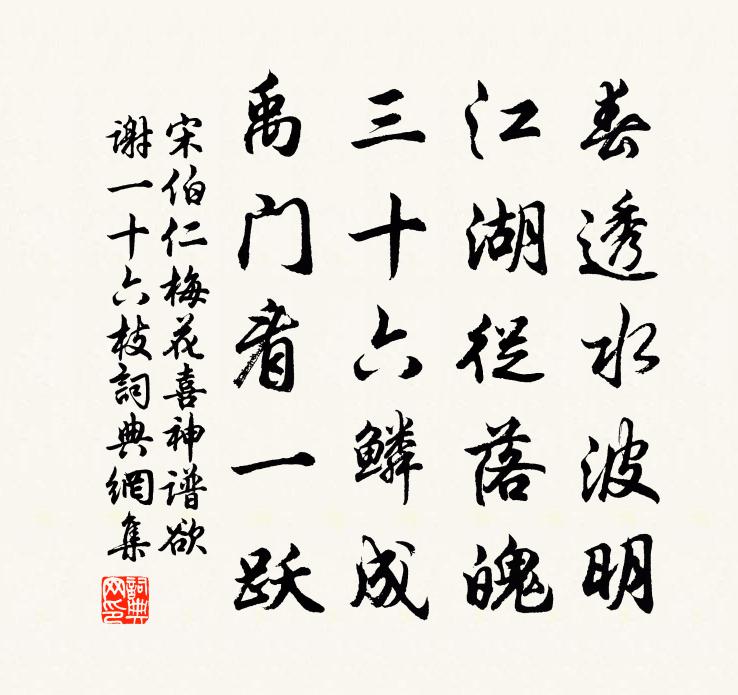 春透水波明
江湖從落魄
三十六鳞成
禹门看一跃
宋伯仁梅花喜神谱欲
谢一十六枝詞典網集
詞典網印